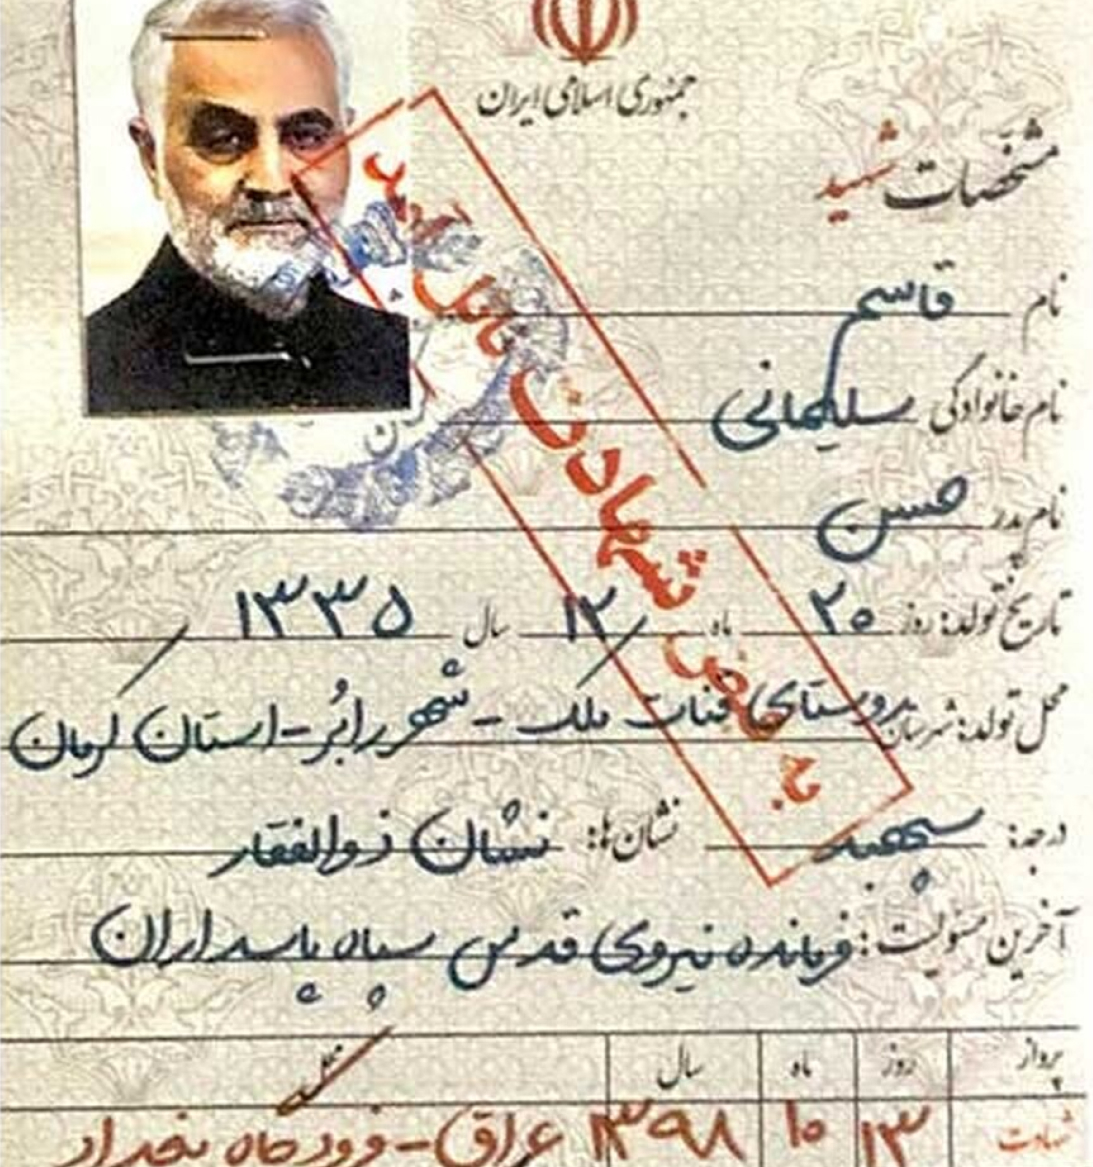 جمهوری اسلامی ایران
مشخصات شهید
نام قاسم
نام خانوادگی سلیمانی
نام پدر حسن
تاریخ تولد: روز ۲۰ ماه ۱۲ سال ۱۳۳۵
محل تولد: شهرستان روستای قنات ملک - شهر رابُر - استان کرمان
درجه: سپهبد نشان‌ها: نشان ذوالفقار
آخرین مسئولیت: فرمانده نیروی قدس سپاه پاسداران
به فیض شهادت نائل آمد
پرواز روز ماه سال محل
شهادت ۱۳ ۱۰ ۱۳۹۸ عراق - فرودگاه بغداد